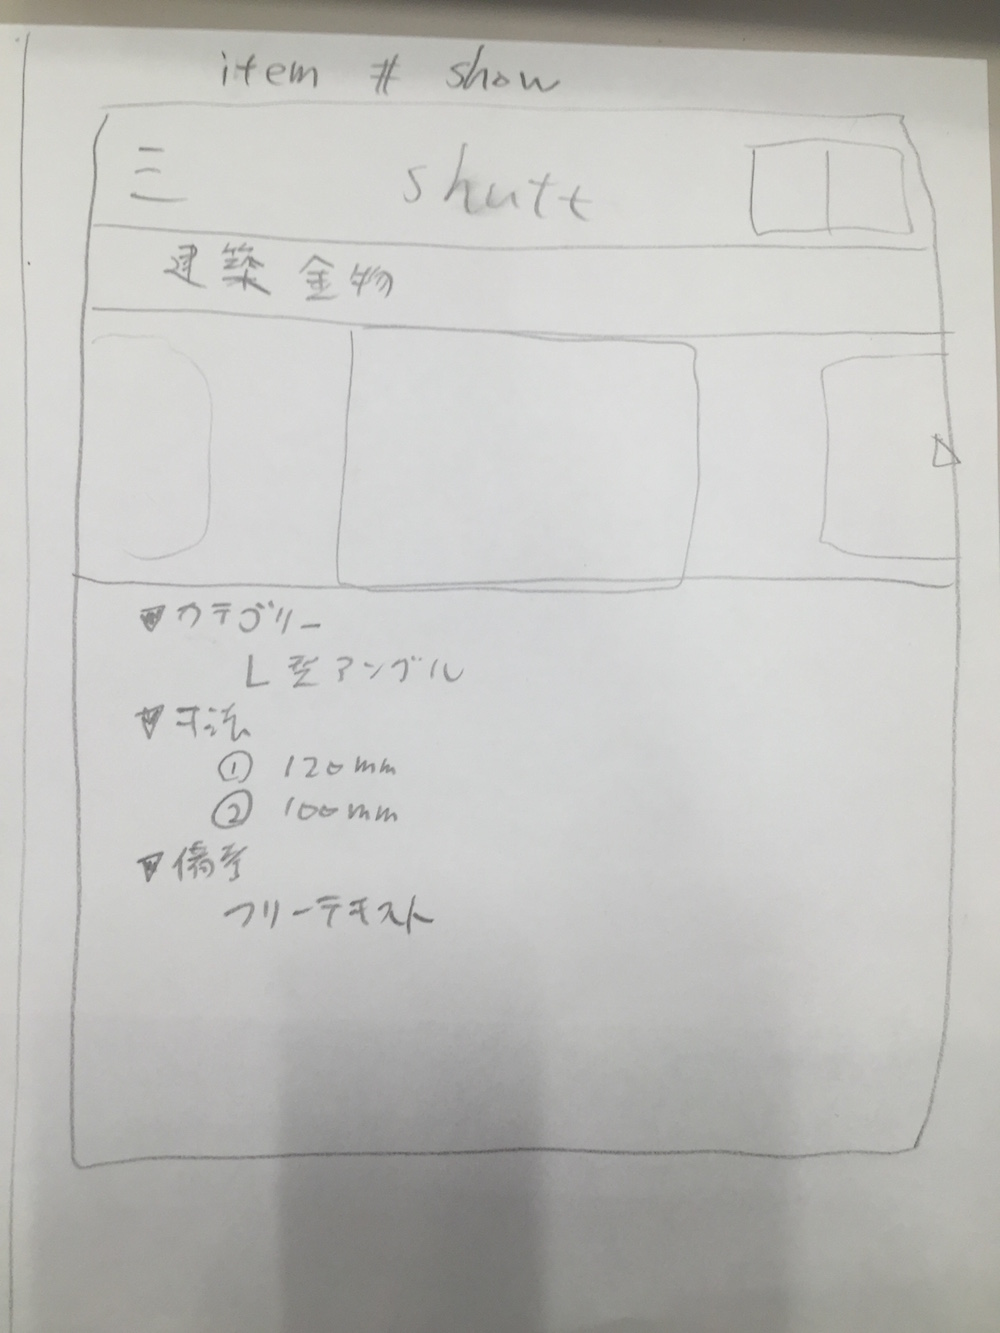 item # show
三 shutt
建築金物
▼カテゴリー
L型アングル
▼寸法
① 120mm
② 100mm
▼備考
フリーテキスト